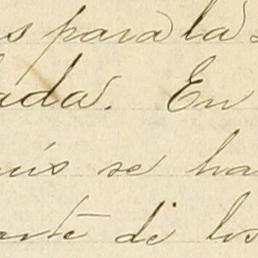 s para la
ada. En
uis se ha
arte de los